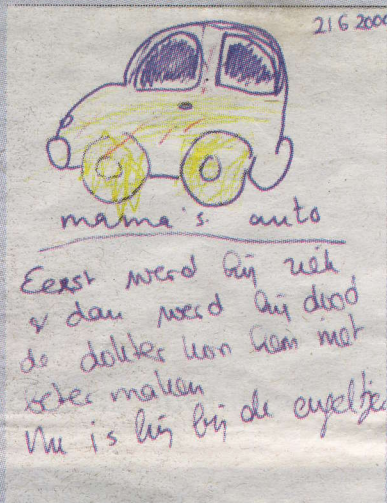 21 6 2000
mama's auto
Eerst werd hij ziek
& dan werd hij dood
de dokter kon hem niet
beter maken
Nu is hij bij de engeltjes